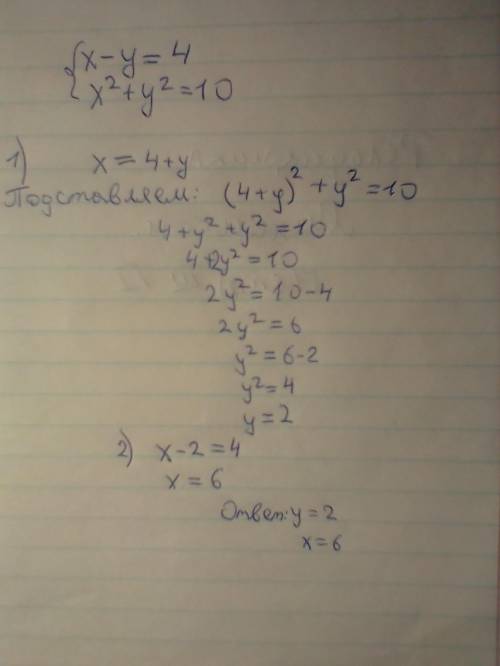 x-y=4
x²+y²=10
1) x=4+y
Подставляем: (4+y)²+y²=10
4+y²+y²=10
4+2y²=10
2y²=10-4
2y²=6
y²=6-2
y²=4
y=2
2) x-2=4
x=6
Ответ: y=2
x=6